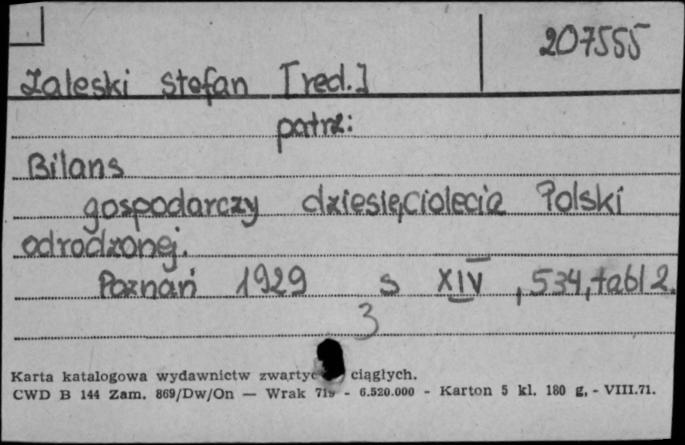 207555
Zaleski Stefan [red.]
patrz:
Bilans
gospodarczy dziesięciolecia Polski
odrodzonej.
Poznań 1929 s XIV, 534, tabl 2.
3
Karta katalogowa wydawnictw ciągłych.
CWD B 144 Zam. 869/Dw/On — Wrak - 6.520.000 - Karton 5 kl. 180 g, - VIII.71.